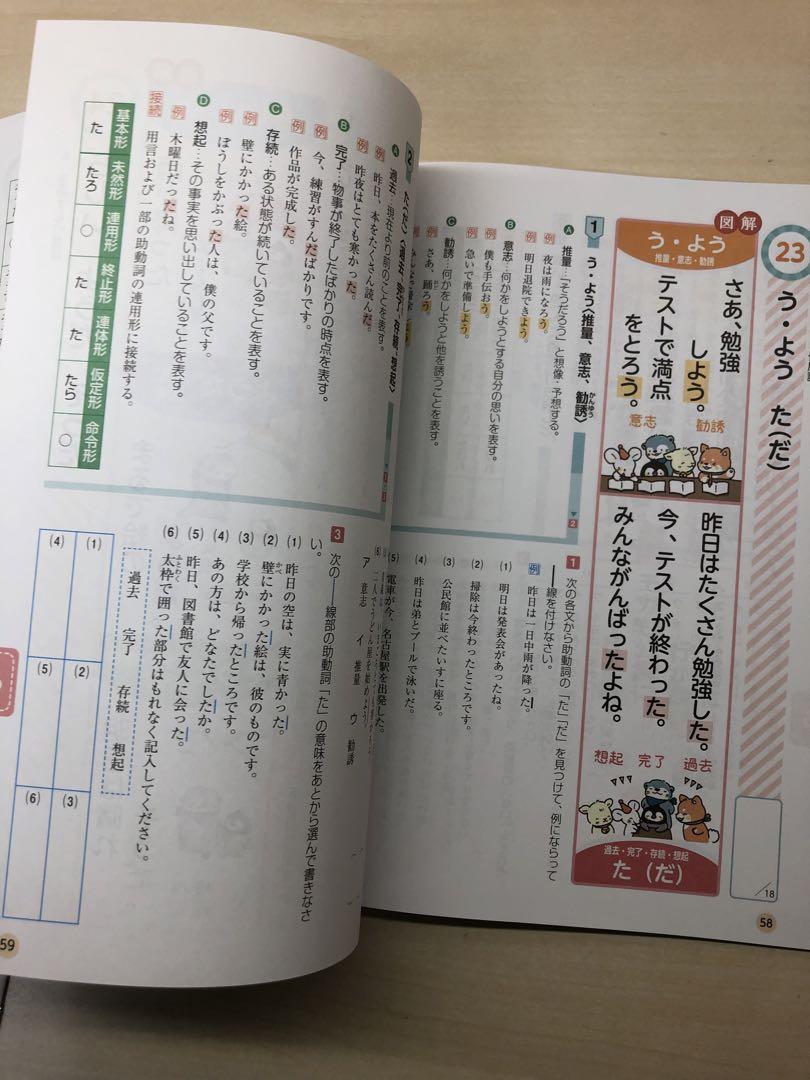 23
う・よう た(だ)
／18
図解
う・よう
推量・意志・勧誘
さあ、勉強
しよう。
勧誘
テストで満点
をとろう。
意志
昨日はたくさん勉強した。
過去
今、テストが終わった。
完了
みんながんばったよね。
想起
過去・完了・存続・想起
た（だ）
1 う・よう〈推量、意志、勧誘〉
かんゆう
A 推量…「そうだろう」と想像・予想する。
例 夜は雨になろう。
例 明日退院できよう。
B 意志…何かをしようとする自分の思いを表す。
例 僕も手伝おう。
例 急いで準備しよう。
C 勧誘…何かをしようと他を誘うことを表す。
例 さあ、踊ろう。
▼2
1 次の各文から助動詞の「た」「だ」を見つけて、例にならって
線を付けなさい。
例 昨日は一日中雨が降った。
(1) 明日は発表会があったね。
(2) 掃除は今終わったところです。
(3) 公民館に並べたいすに座る。
(4) 昨日は弟とプールで泳いだ。
(5) 電車が今、名古屋駅を出発した。
(6)
ア 意志 イ 推量 ウ 勧誘
58
2
A 過去…現在より前のことを表す。
例 昨日、本をたくさん読んだ。
例 昨夜はとても寒かった。
B 完了…物事が終了したばかりの時点を表す。
例 今、練習がすんだばかりです。
例 作品が完成した。
C 存続…ある状態が続いていることを表す。
例 壁にかかった絵。
例 ぼうしをかぶった人は、僕の父です。
D 想起…その事実を思い出していることを表す。
例 木曜日だったね。
接続 用言および一部の助動詞の連用形に接続する。
基本形 未然形 連用形 終止形 連体形 仮定形 命令形
た たろ ○ た た たら ○
3 次の――線部の助動詞「た」の意味をあとから選んで書きなさ
い。
(1) 昨日の空は、実に青かった。
(2) 壁にかかった絵は、彼のものです。
かべ
(3) 学校から帰ったところです。
(4) あの方は、どなたでしたか。
(5) 昨日、図書館で友人に会った。
(6) 太枠で囲った部分はもれなく記入してください。
ふとわく
過去 完了 存続 想起
(1)
(2)
(3)
(4)
(5)
(6)
59